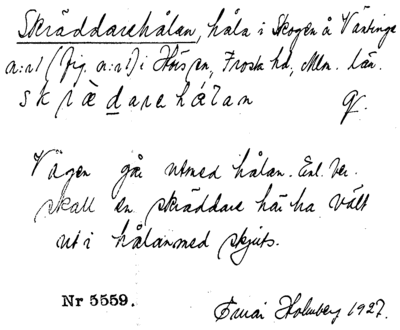 Skräddarehålan, håla i Skogen å Väntinge
a:n1 (fig. a:n1) i Hörs sn, Frosta hd, Mlm. län.
skrædarehålan
Vägen går utmed hålan. Enl. ber.
skall en skräddare här ha vält
ut i hålan med skjuts.
Nr 5559.
Holmberg 1927.